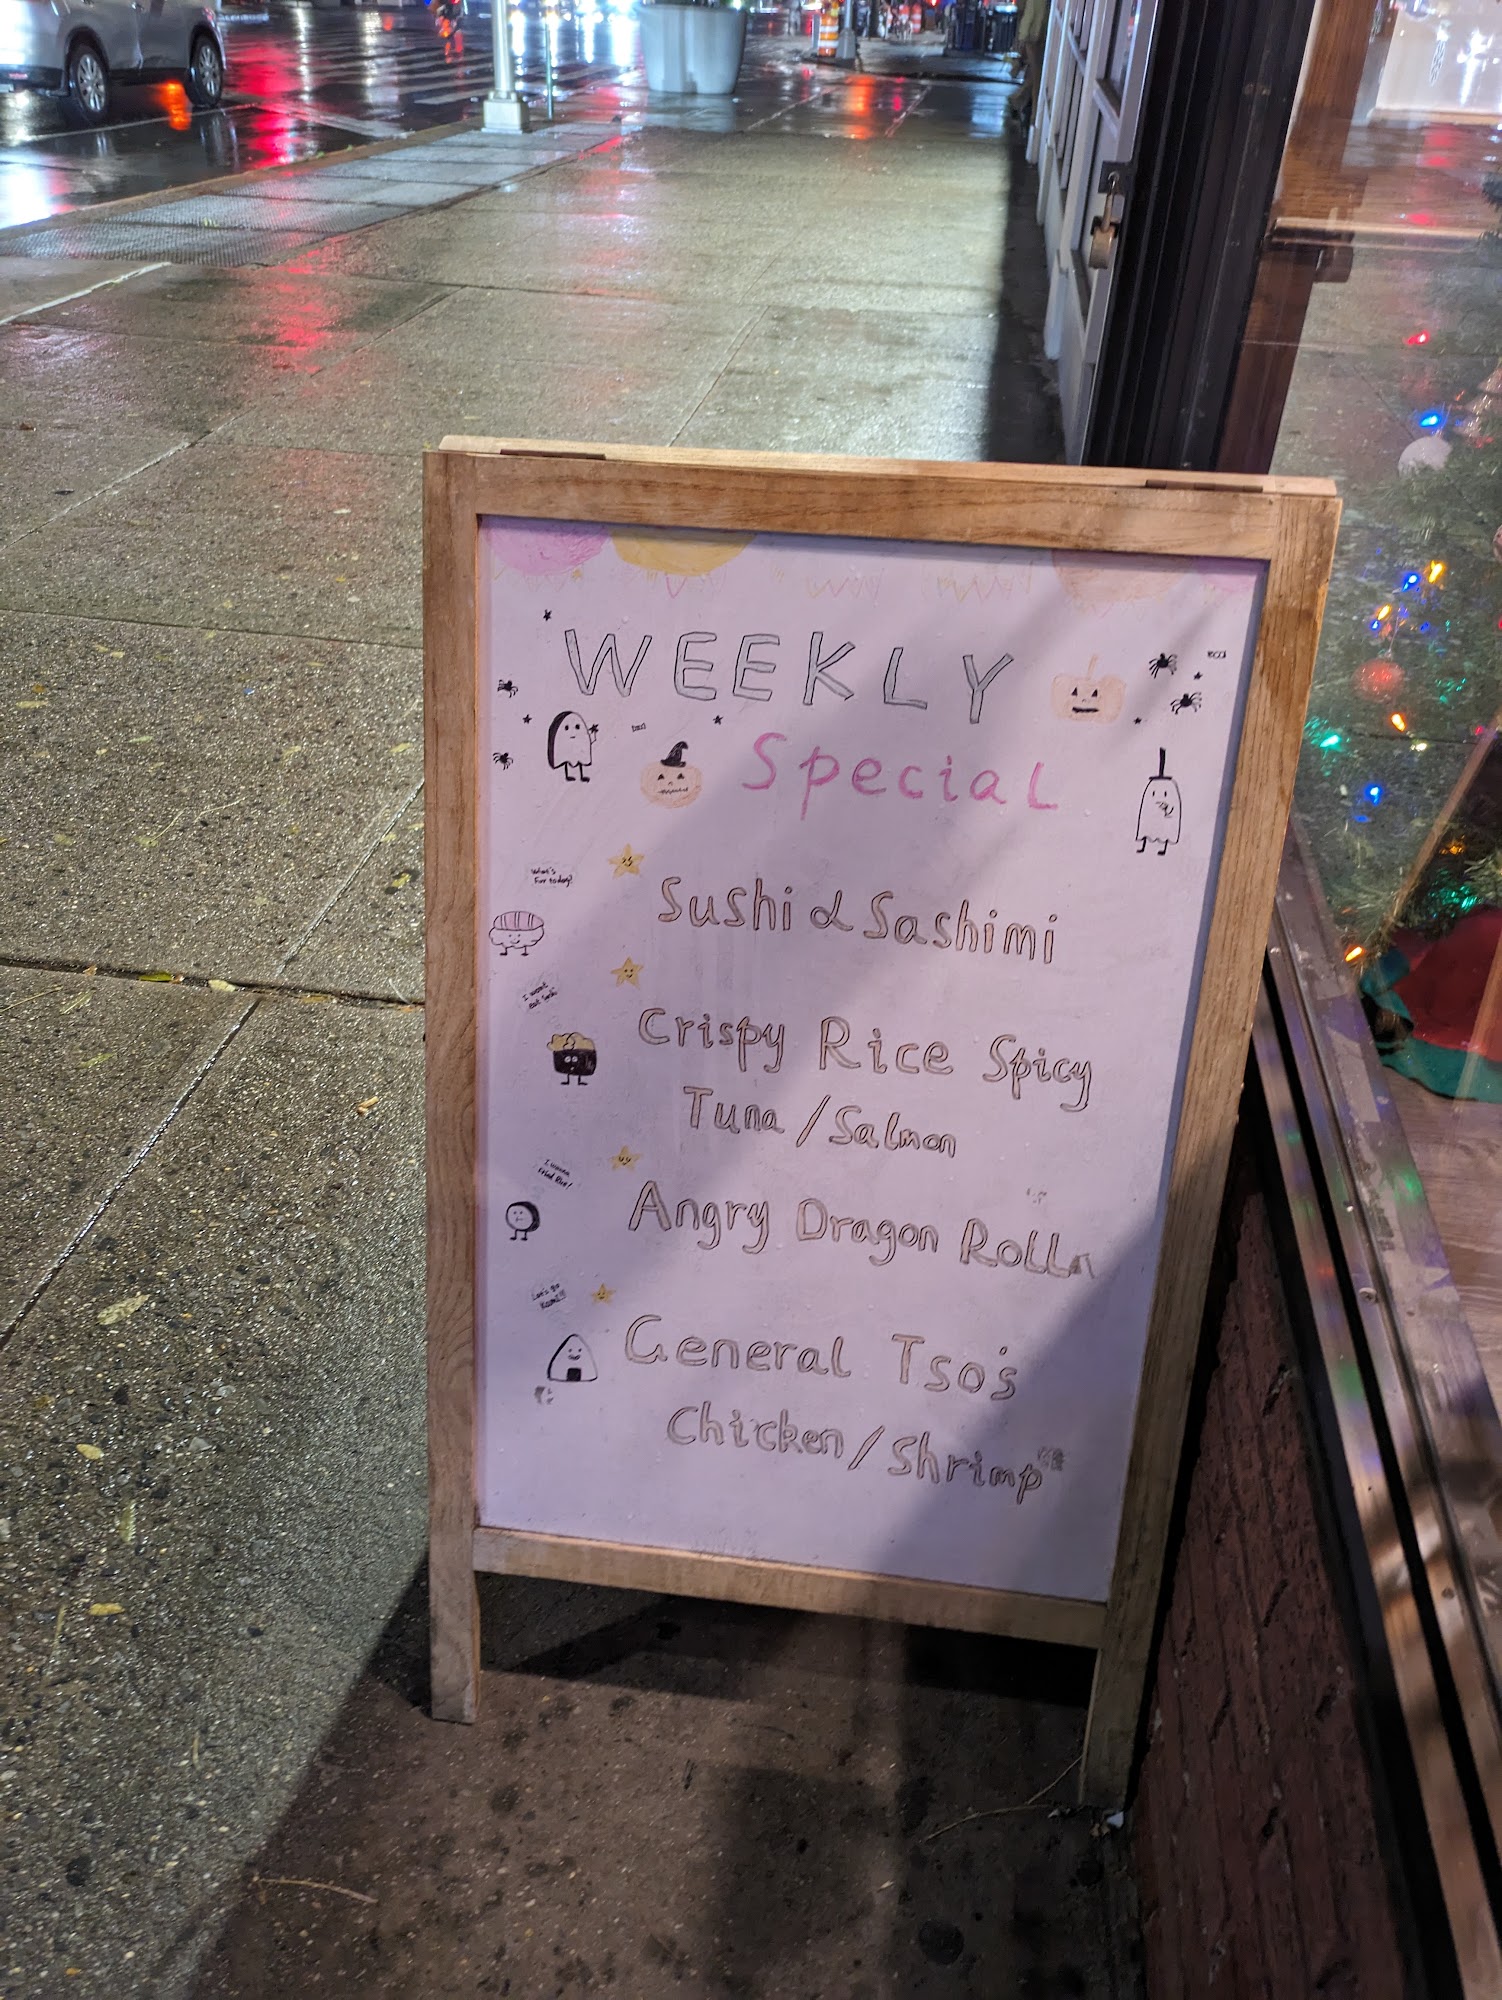 WEEKLY
Special
What's
for today?
Sushi & Sashimi
I want
Crispy Rice Spicy
Tuna / Salmon
I wanna
fried Rice!
Angry Dragon Roll
Let's go
General Tso's
Chicken / Shrimp